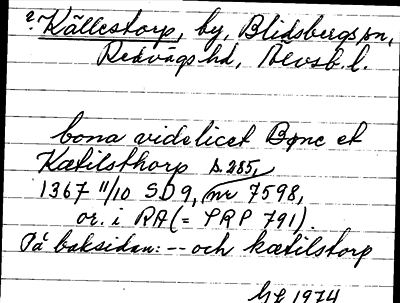 ? Källestorp, by, Blidsbergs sn,
Redvägs hd, Älvsb. l.
bona videlicet Bønc et
Kætilsthorp s. 285,
1367 11/10 SD 9, nr 7598,
or. i RA (= PRP 791).
På baksidan: -- och kætilstorp
1974